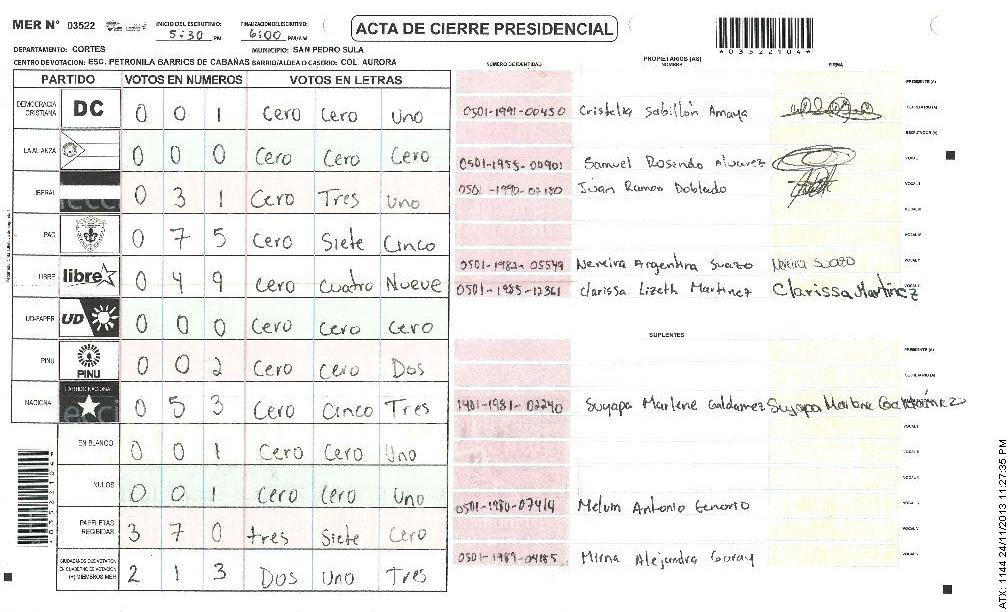 MER Nº 03522 INICIO DEL ESCRUTINIO: 5:30 PM FINALIZACION ESCRUTINIO: 6:00 PM/AM ACTA DE CIERRE PRESIDENCIAL
*03522104*
DEPARTAMENTO: CORTES MUNICIPIO: SAN PEDRO SULA
CENTRO DE VOTACION: ESC. PETRONILA BARRIOS DE CABAÑAS BARRIO/ALDEA O CASERIO: COL. AURORA
PARTIDO VOTOS EN NUMEROS VOTOS EN LETRAS
DEMOCRACIA CRISTIANA DC 0 0 1 Cero Cero Uno
LA ALIANZA 0 0 0 Cero Cero Cero
LIBERAL 0 3 1 Cero Tres Uno
PAC 0 7 5 Cero Siete Cinco
LIBRE libre 0 4 9 Cero Cuatro Nueve
UD-FAPER UD 0 0 0 Cero Cero Cero
PINU PINU 0 0 2 Cero Cero Dos
NACIONAL PARTIDO NACIONAL 0 5 3 Cero Cinco Tres
EN BLANCO 0 0 1 Cero Cero Uno
NULOS 0 0 1 Cero Cero Uno
PAPELETAS RECIBIDAS 3 7 0 tres Siete Cero
CIUDADANOS QUE VOTARON EN CUADERNO DE VOTACION (+) MIEMBROS MER 2 1 3 Dos Uno Tres
PROPIETARIOS (AS)
NUMERO DE IDENTIDAD NOMBRE FIRMA
PRESIDENTE (A)
0501-1991-00450 Cristelia Sabillón Amaya SECRETARIO (A)
0501-1955-00901 Samuel Rosendo Alvarez
0501-1990-07180 Juan Ramon Doblado
0501-1982-05549 Nereira Argentina Suazo Nereira Suazo
0501-1985-12361 Clarissa Lizeth Martinez Clarissa Martinez
SUPLENTES
PRESIDENTE (A)
SECRETARIO (A)
1401-1981-02240 Suyapa Marlene Galdamez
0501-1980-07414 Melvin Antonio Tenorio
0501-1989-04185 Mirna Alejandra Garay
ATX: 1144 24/11/2013 11:27:35 PM